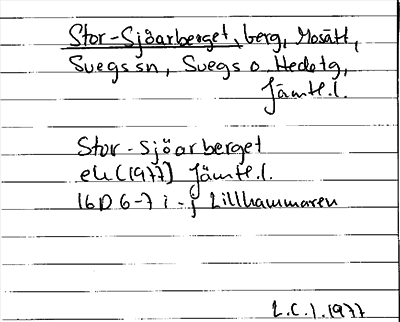 Stor-Sjöarberget, berg, Mosätt,
Svegs sn, Svegs o Hede tg,
Jämtl.l.
Stor-Sjöarberget
ek (1977) Jämtl.l.
16D 6-7 i-j Lillhammaren
L.C.J. 1977